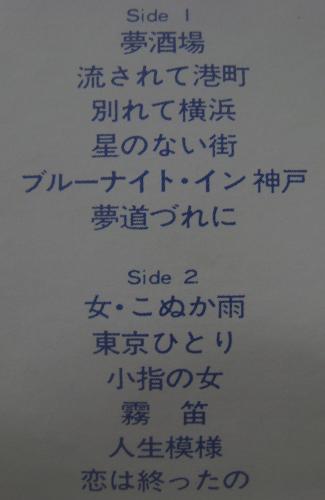 Side 1
夢酒場
流されて港町
別れて横浜
星のない街
ブルーナイト・イン神戸
夢道づれに
Side 2
女・こぬか雨
東京ひとり
小指の女
霧 笛
人生模様
恋は終ったの